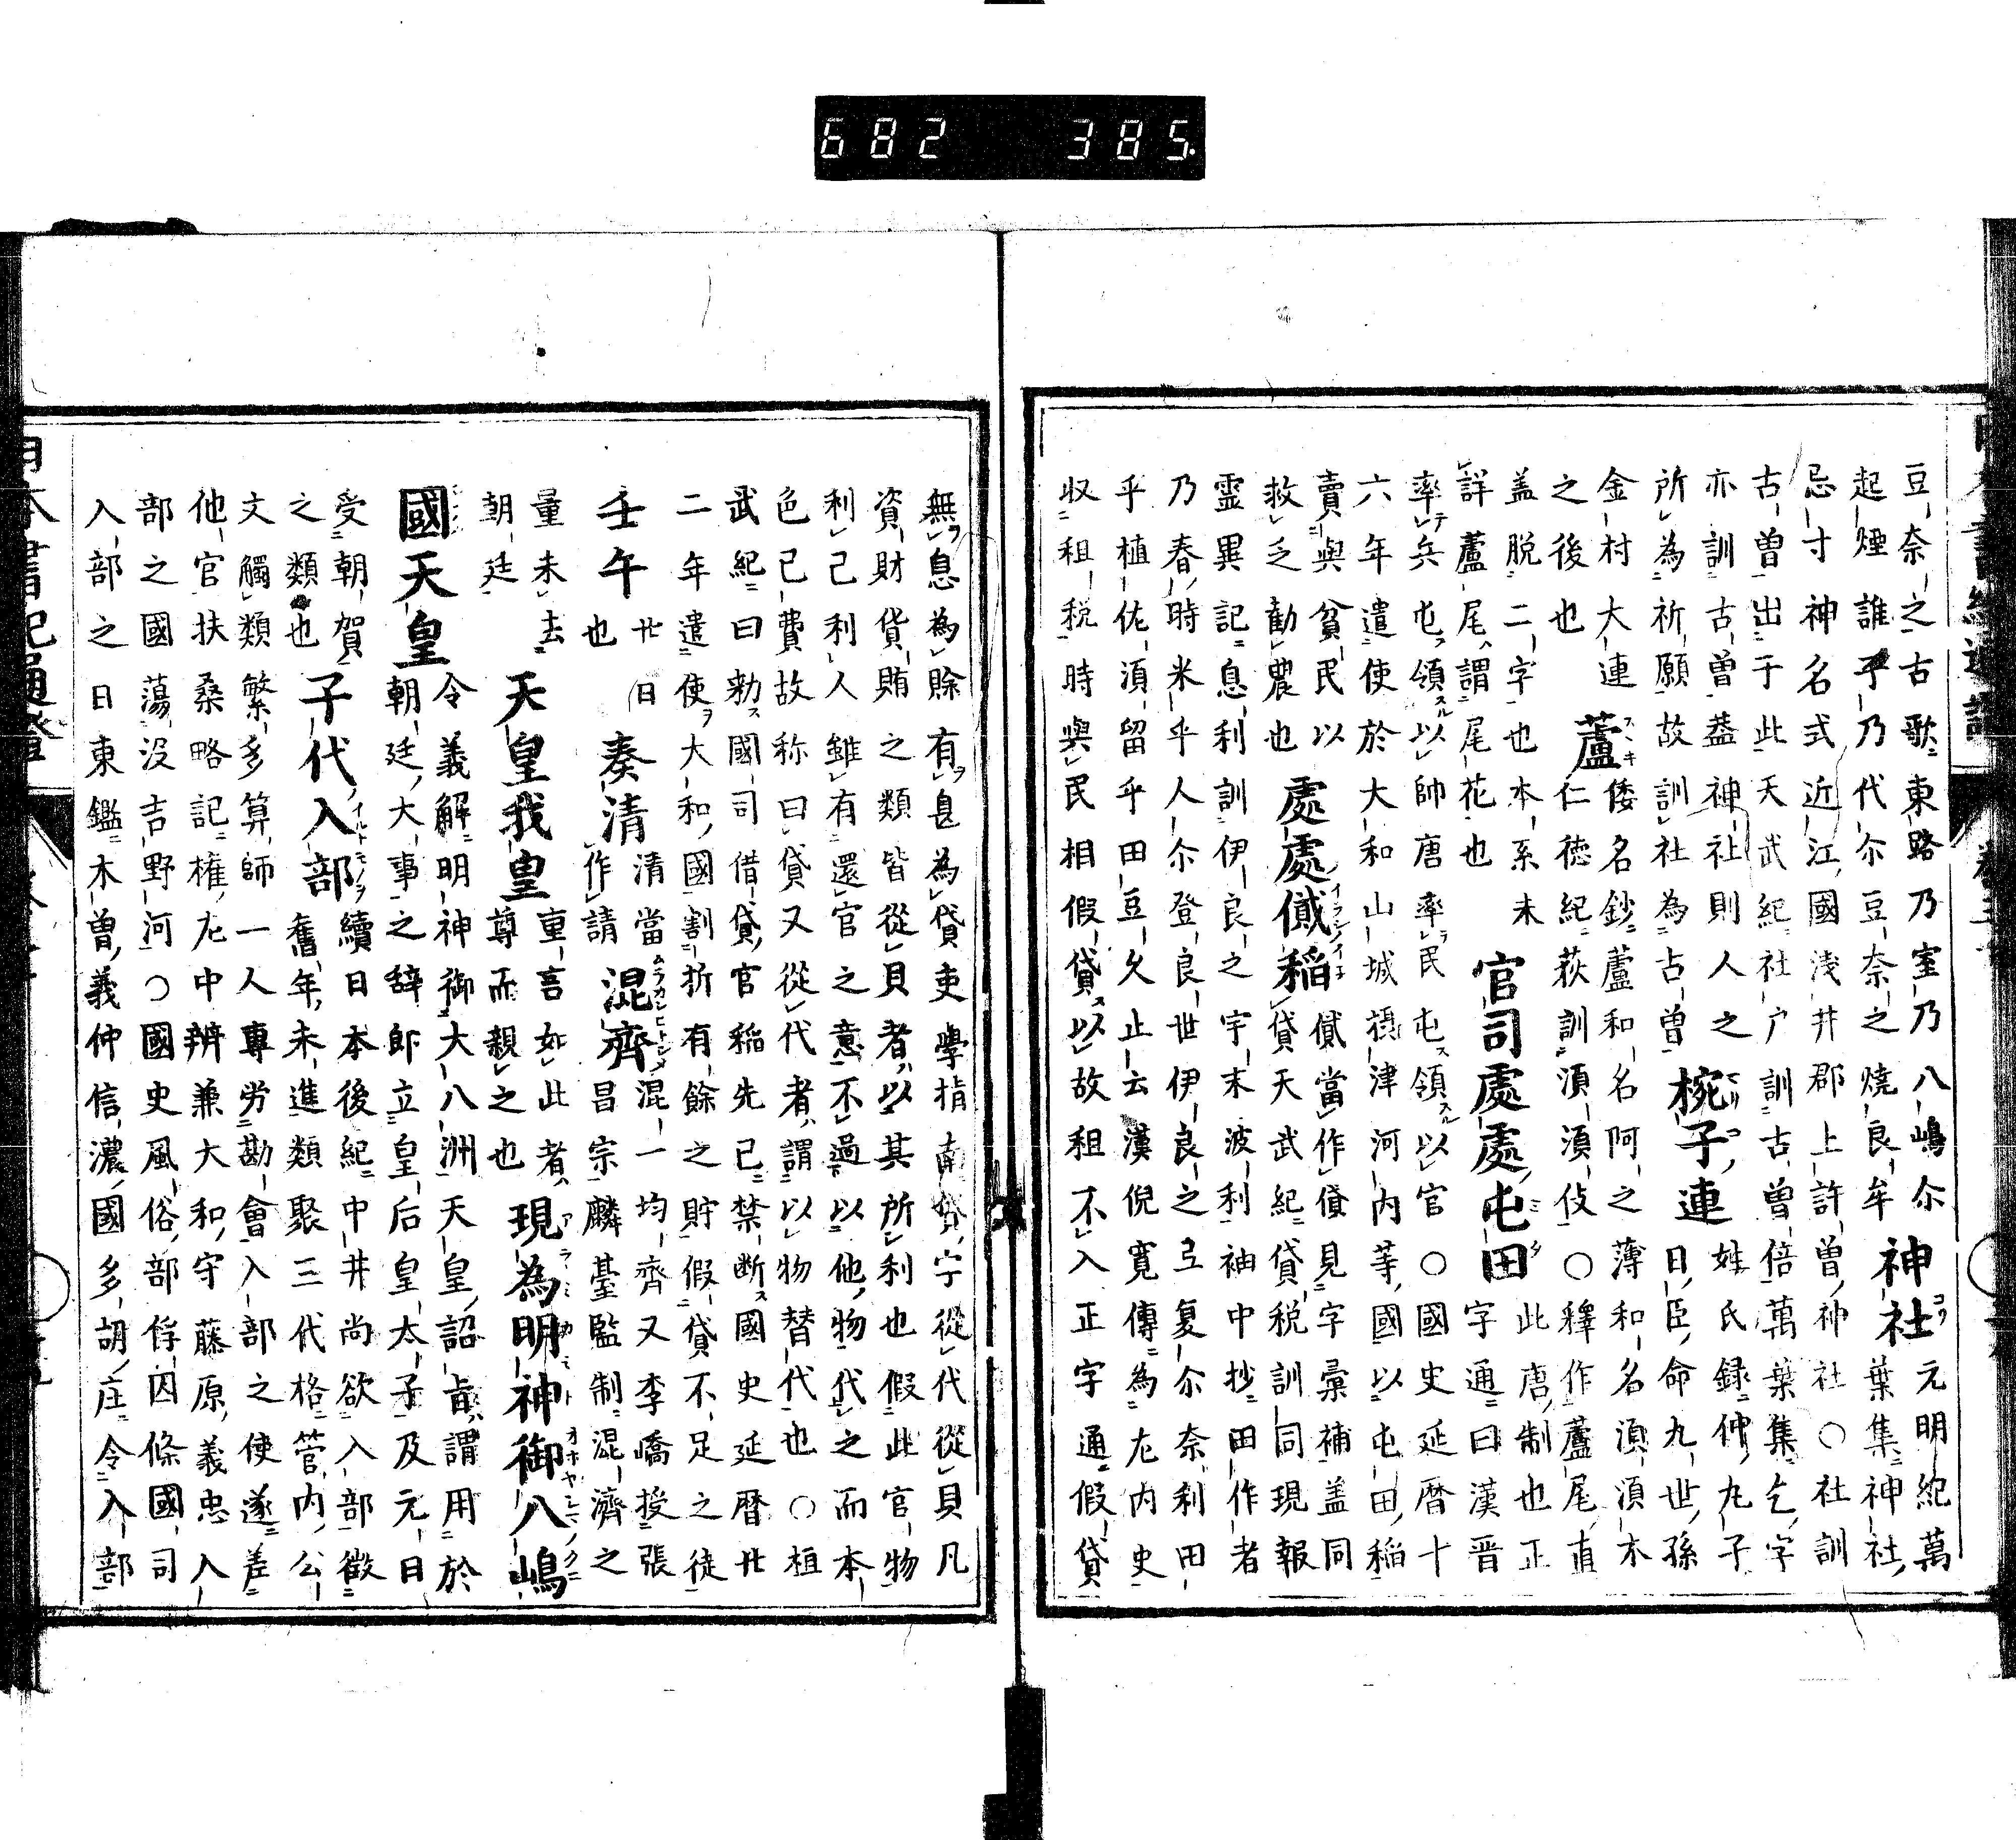 682 385.
豆奈之古歌東路乃室乃八嶋尓神社元明紀萬
起煙誰乎乃代尓豆奈之燒良牟神社葉集神社
忌寸神名式近江國淺井郡上許曽神社○社訓
古曽出于此天武紀社戸訓古曽倍萬葉集乞字
亦訓古曽蓋神社則人之椀子連姓氏録仲丸子
所為祈願故訓社為古曽日臣命九世孫
金村大連蘆倭名鈔蘆和名阿之薄和名須須木
之後也仁徳紀荻訓須須伎○釋作蘆尾直
盖脱二字也本系未官司處處屯田此唐制也正
詳蘆尾謂尾花也字通曰漢晋
率兵屯領以帥唐率民屯領以官○國史延暦十
六年遣使於大和山城攝津河内等國以屯田稲
賣與貧民以處處貣稲貣當作貸見字彙補盖同
救乏勧農也貸天武紀貸税訓同現報
霊異記息利訓伊良之宇末波利袖中抄田作者
乃春時米乎人尓登良世伊良之弖复尓奈利田
乎植佐須留乎田豆久止云漢倪寛傳為左内史
収租税時與民相假貸以故租不入正字通假貸
無息為賒有息為貸吏學指南貸字從代從貝凡
資財貨賄之類皆從貝者以其所利也假此官物
利己利人雖有還官之意不過以他物代之而本
色已費故称曰貸又從代者謂以物替代也○桓
武紀曰勅國司借貸官稲先已禁断國史延暦廿
二年遣使大和國割折有餘之貯假貸不足之徒
壬午廿日也奏清清當作請混齊混一均齊又李嶠授張昌宗麟臺監制混濟之
量未去天皇我皇重言如此者現為明神御八嶋
朝廷尊而親之也
國天皇令義解明神御大八洲天皇詔旨謂用於
朝廷大事之辞即立皇后皇太子及元日
受朝賀子代入部續日本後紀中井尚欲入部徴
之類也舊年未進類聚三代格菅内公
文觸類繁多算師一人專労勘會入部之使遂差
他官扶桑略記權左中辨兼大和守藤原義忠入
部之國蕩没吉野河○國史風俗部俘囚條國司
入部之日東鑑木曽義仲信濃國多胡庄令入部